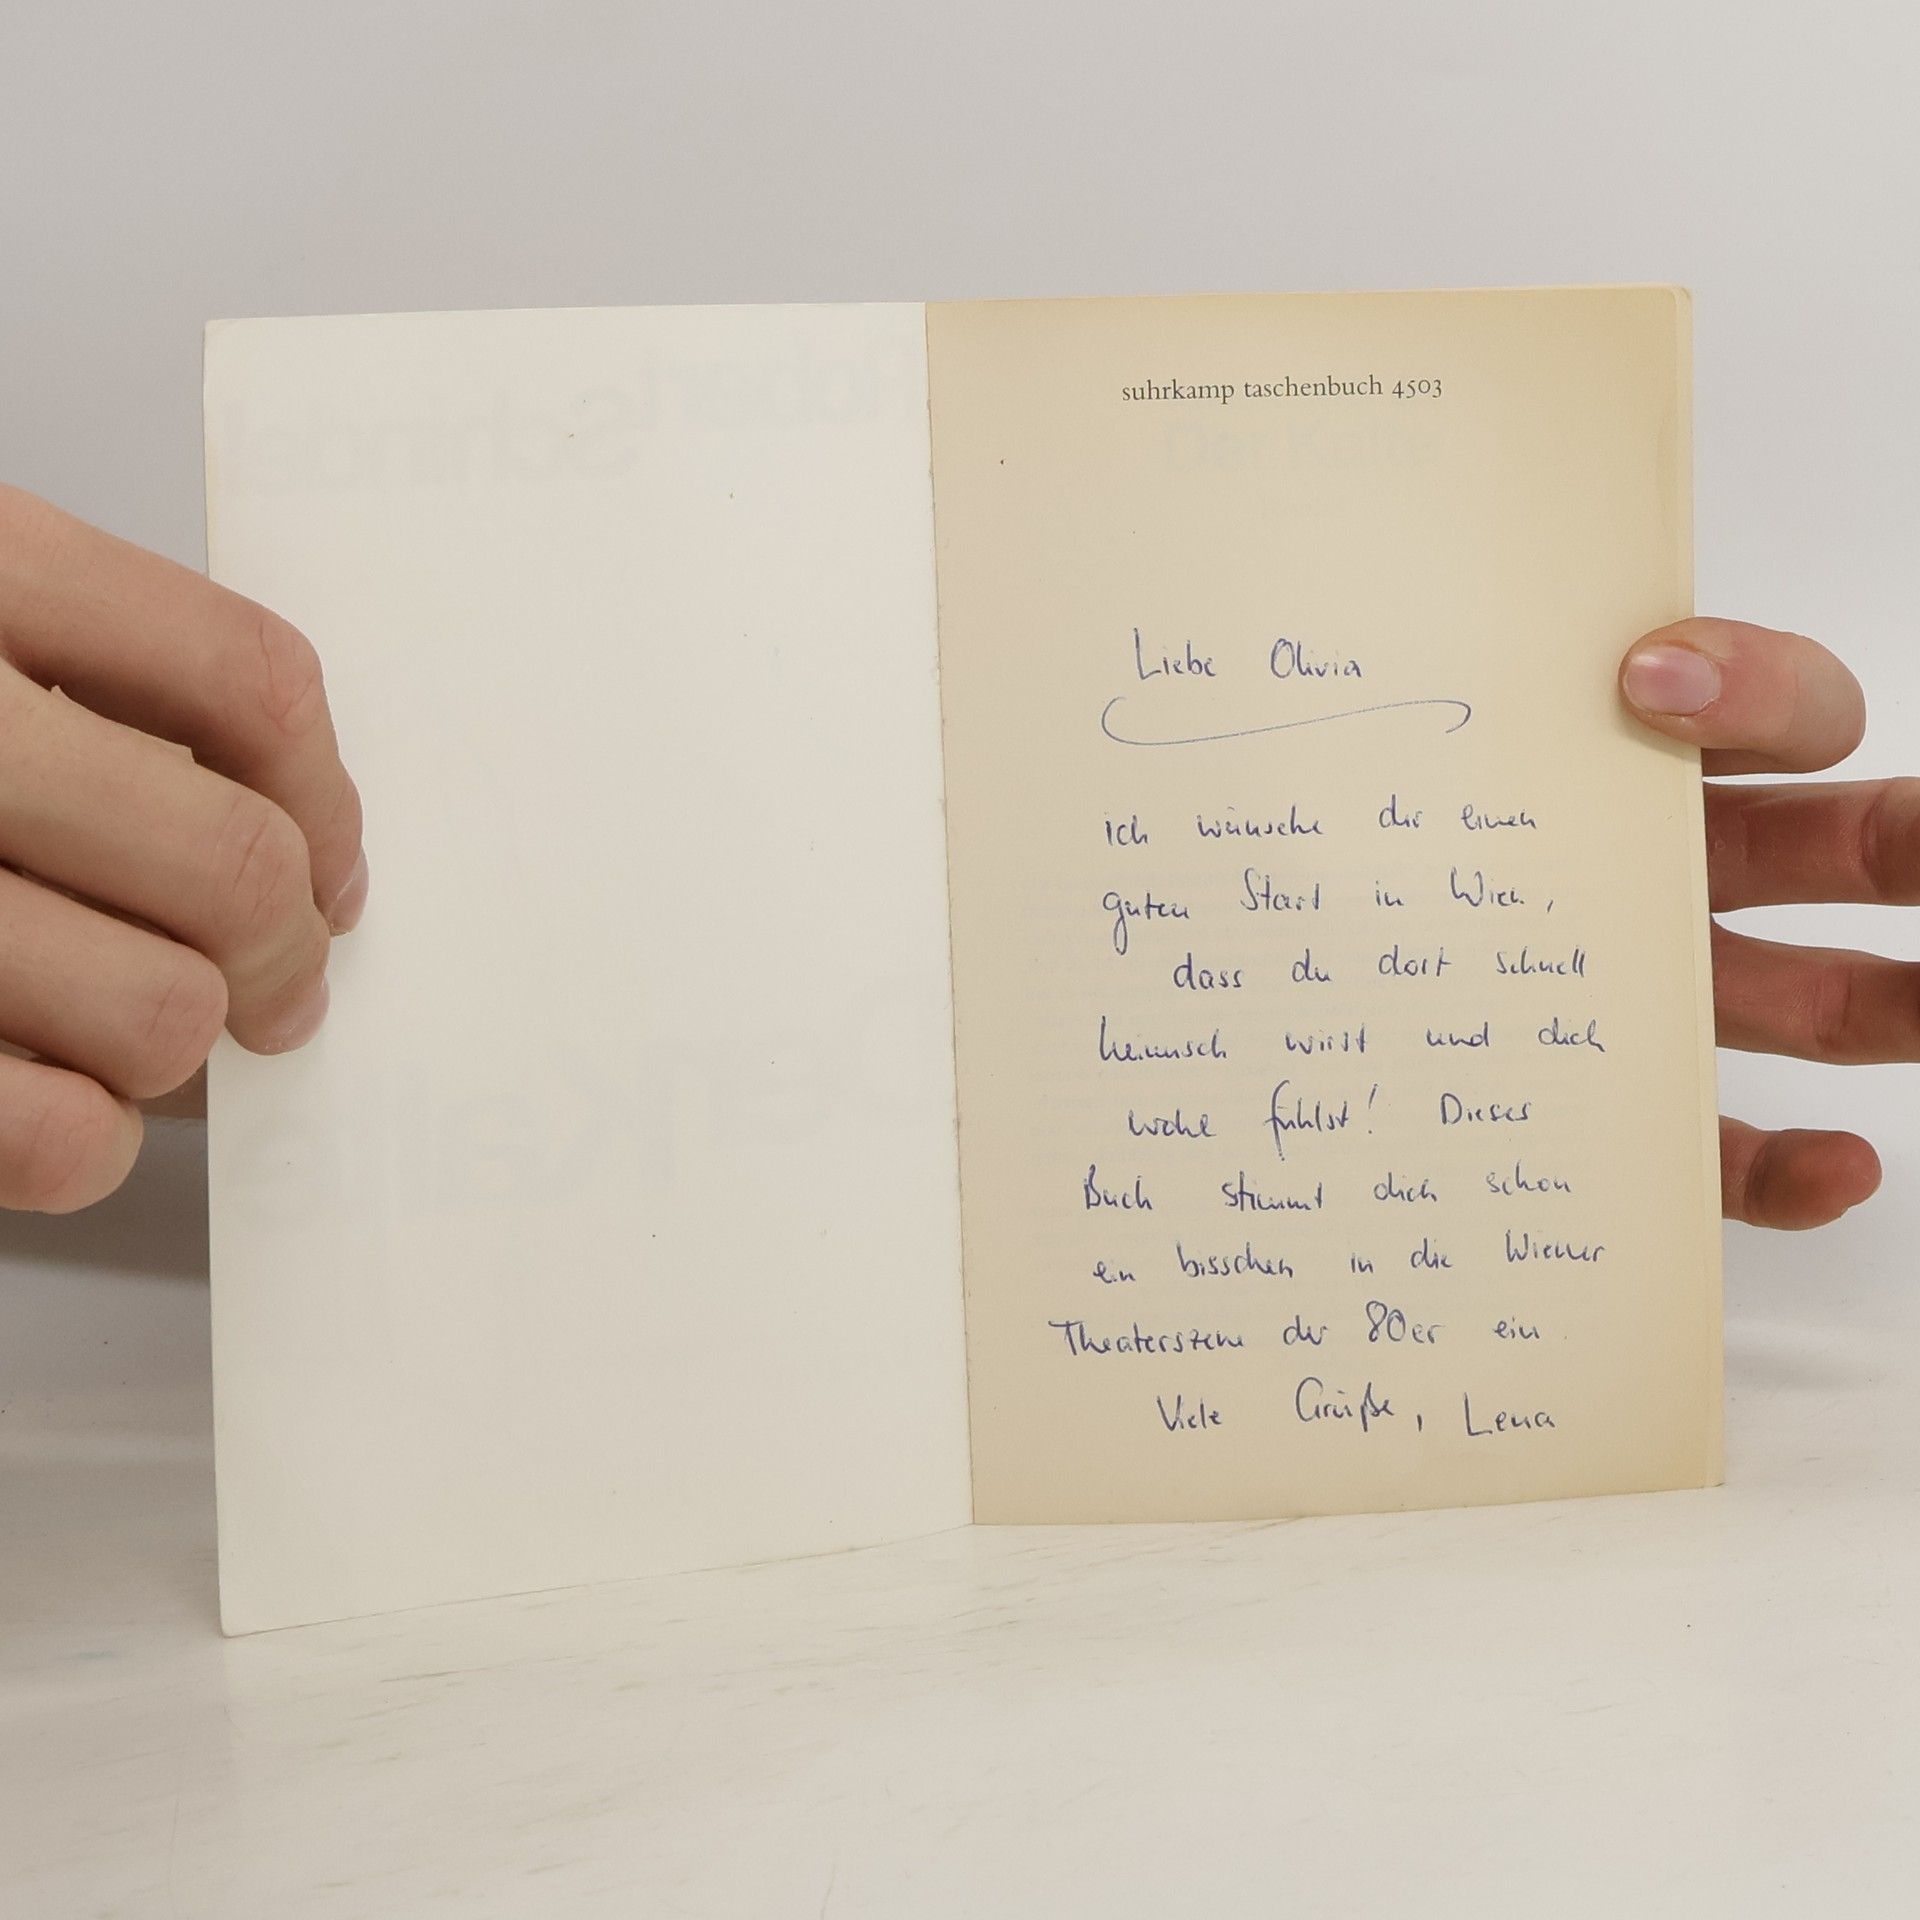 suhrkamp taschenbuch 4503
Liebe Olivia
ich wünsche dir einen
guten Start in Wien,
dass du dort schnell
heimisch wirst und dich
wohl fühlst! Dieses
Buch stimmt dich schon
ein bisschen in die Wiener
Theaterszene der 80er ein.
Viele Grüße, Lena